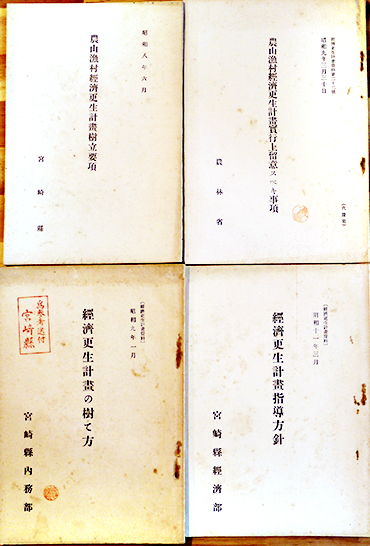 昭和八年六月
農山漁村經濟更生計畫樹立要項
宮崎縣
昭和九年三月三十日
農山漁村經濟更生計畫實行上留意スベキ事項
農林省
(經濟更生計畫資料)
昭和九年一月
經濟更生計畫の樹て方
宮崎縣內務部
爲參考送付
宮崎縣
(經濟更生計畫資料)
昭和十一年三月
經濟更生計畫指導方針
宮崎縣經濟部